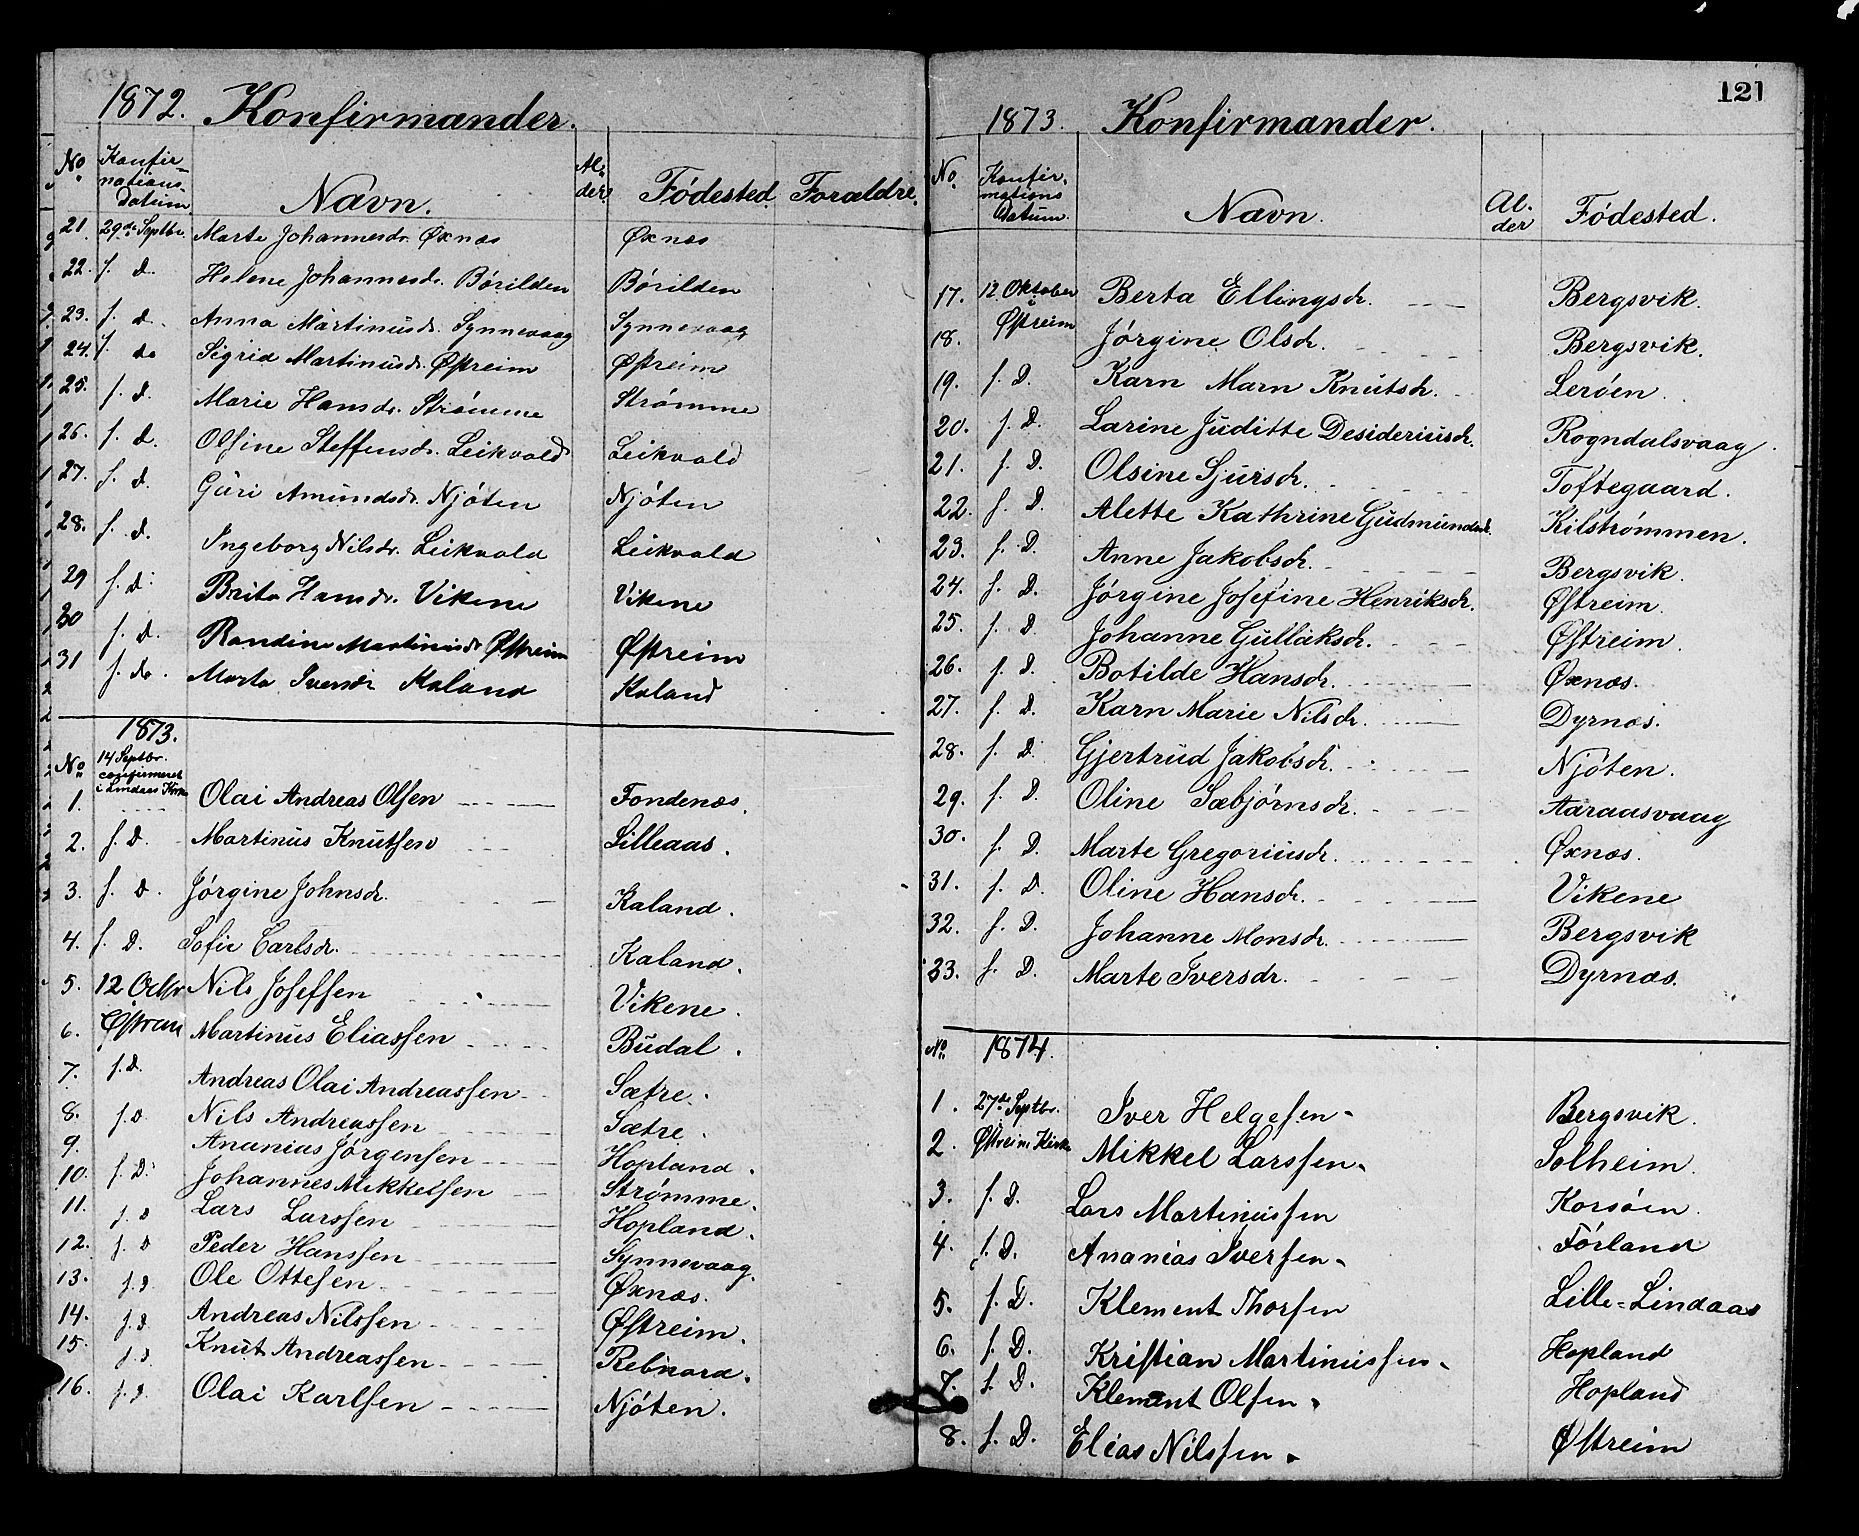 1872. Konfirmander.
No Konfir-mations-Datum. Navn. Al-der. Fódested. Forældre.
21 29de Septbr. Marte Johannesdr. Øxnæs Øxnæs
22. f. d. Helene Johannesdr. Bórilden Bórilden
23. f. d. Anna Martinusdr. Synnevaag Synnevaag
24. f. do Sigrid Martinusdr. Øftreim Øftreim
25. f. d. Marie Hansdr. Strómme Strómme
26. f. d. Olfine Steffensdr. Leikvold Leikvold
27. f. d. Guri Amundsdr. Njóten Njóten
28. f. d. Ingeborg Nilsdr. Leikvold Leikvold
29 f. d. Brita Hansdr. Vikene Vikene
30 f. d. Randine Martinusdr Øftreim Øftreim
31 f. do. Marta Iversdr Kaland Kaland
1873.
No 14 Septbr. confirmeret i Lindaas Kirke
1. Olai Andreas Olsen Fondenæs.
2. f. D. Martinus Knutsen Lilleaas.
3. f. D. Jórgine Johnsdr. Kaland.
4. f. D. Sofie Carlsdr. Kaland.
5. 12 Octbr Nils Josefsen Vikene.
6. Martinus Eliassen Budal.
7. f. D. Andreas Olai Andreassen Sætre.
8. f. D Nils Andreassen Sætre.
9. Ananias Jórgensen Hopland.
10. f. D. Johannes Mikkelsen Strómme.
11. f. D Lars Larssen Hopland.
12. f. D Peder Hanssen Synnevaag.
13. f. D Ole Ottesen Øxnæs.
14. f. D Andreas Nilssen Øftreim.
15. f. D Knut Andreassen Rebnord.
16. f. D. Olai Karlsen Njóten.
121
1873. Konfirmander.
No. Konfir-mations Datum. Navn. Al-der Fódested.
17. 12 Oktober i Øftreim Berta Ellingsdr. Bergsvik.
18. Jórgine Olsdr. Bergsvik.
19. f. D. Karn Marn Knutsdr. Leróen.
20. f. D. Larine Juditte Desideriusdr. Rogndalsvaag.
21. f. D. Olsine Sjursdr. Toftegaard.
22. f. D. Alette Kathrine Gudmundsdr. Kilstrómmen.
23. f. D. Anne Jakobsdr. Bergsvik.
24. f. D. Jórgine Josefine Henriksdr. Øftreim.
25. f. D. Johanne Gullaksdr. Øftreim.
26. f. D. Botilde Hansdr. Øxnæs.
27. f. D. Karn Marie Nilsdr. Dyrnæs.
28. f. D. Gjertrud Jakobsdr. Njóten.
29. f. D. Oline Sæbjórnsdr. Aaraasvaag
30. f. D. Marte Gregoriusdr. Øxnæs.
31. f. D. Oline Hansdr. Vikene
32. f. D. Johanne Monsdr. Bergsvik
33. f. D. Marte Iversdr. Dyrnæs.
No. 1874.
1. 27de Septbr. Iver Helgesen Bergsvik.
2. Øftreim Kirke Mikkel Larssen Solheim.
3. f. D. Lars Martinussen Korsóen.
4. f. D. Ananias Iversen Fórland
5. f. D. Klement Thorsen Lille-Lindaas
6. f. D. Kristian Martinussen Hopland
7. f. D. Klement Olsen Hopland
8. f. D. Elias Nilssen Øftreim